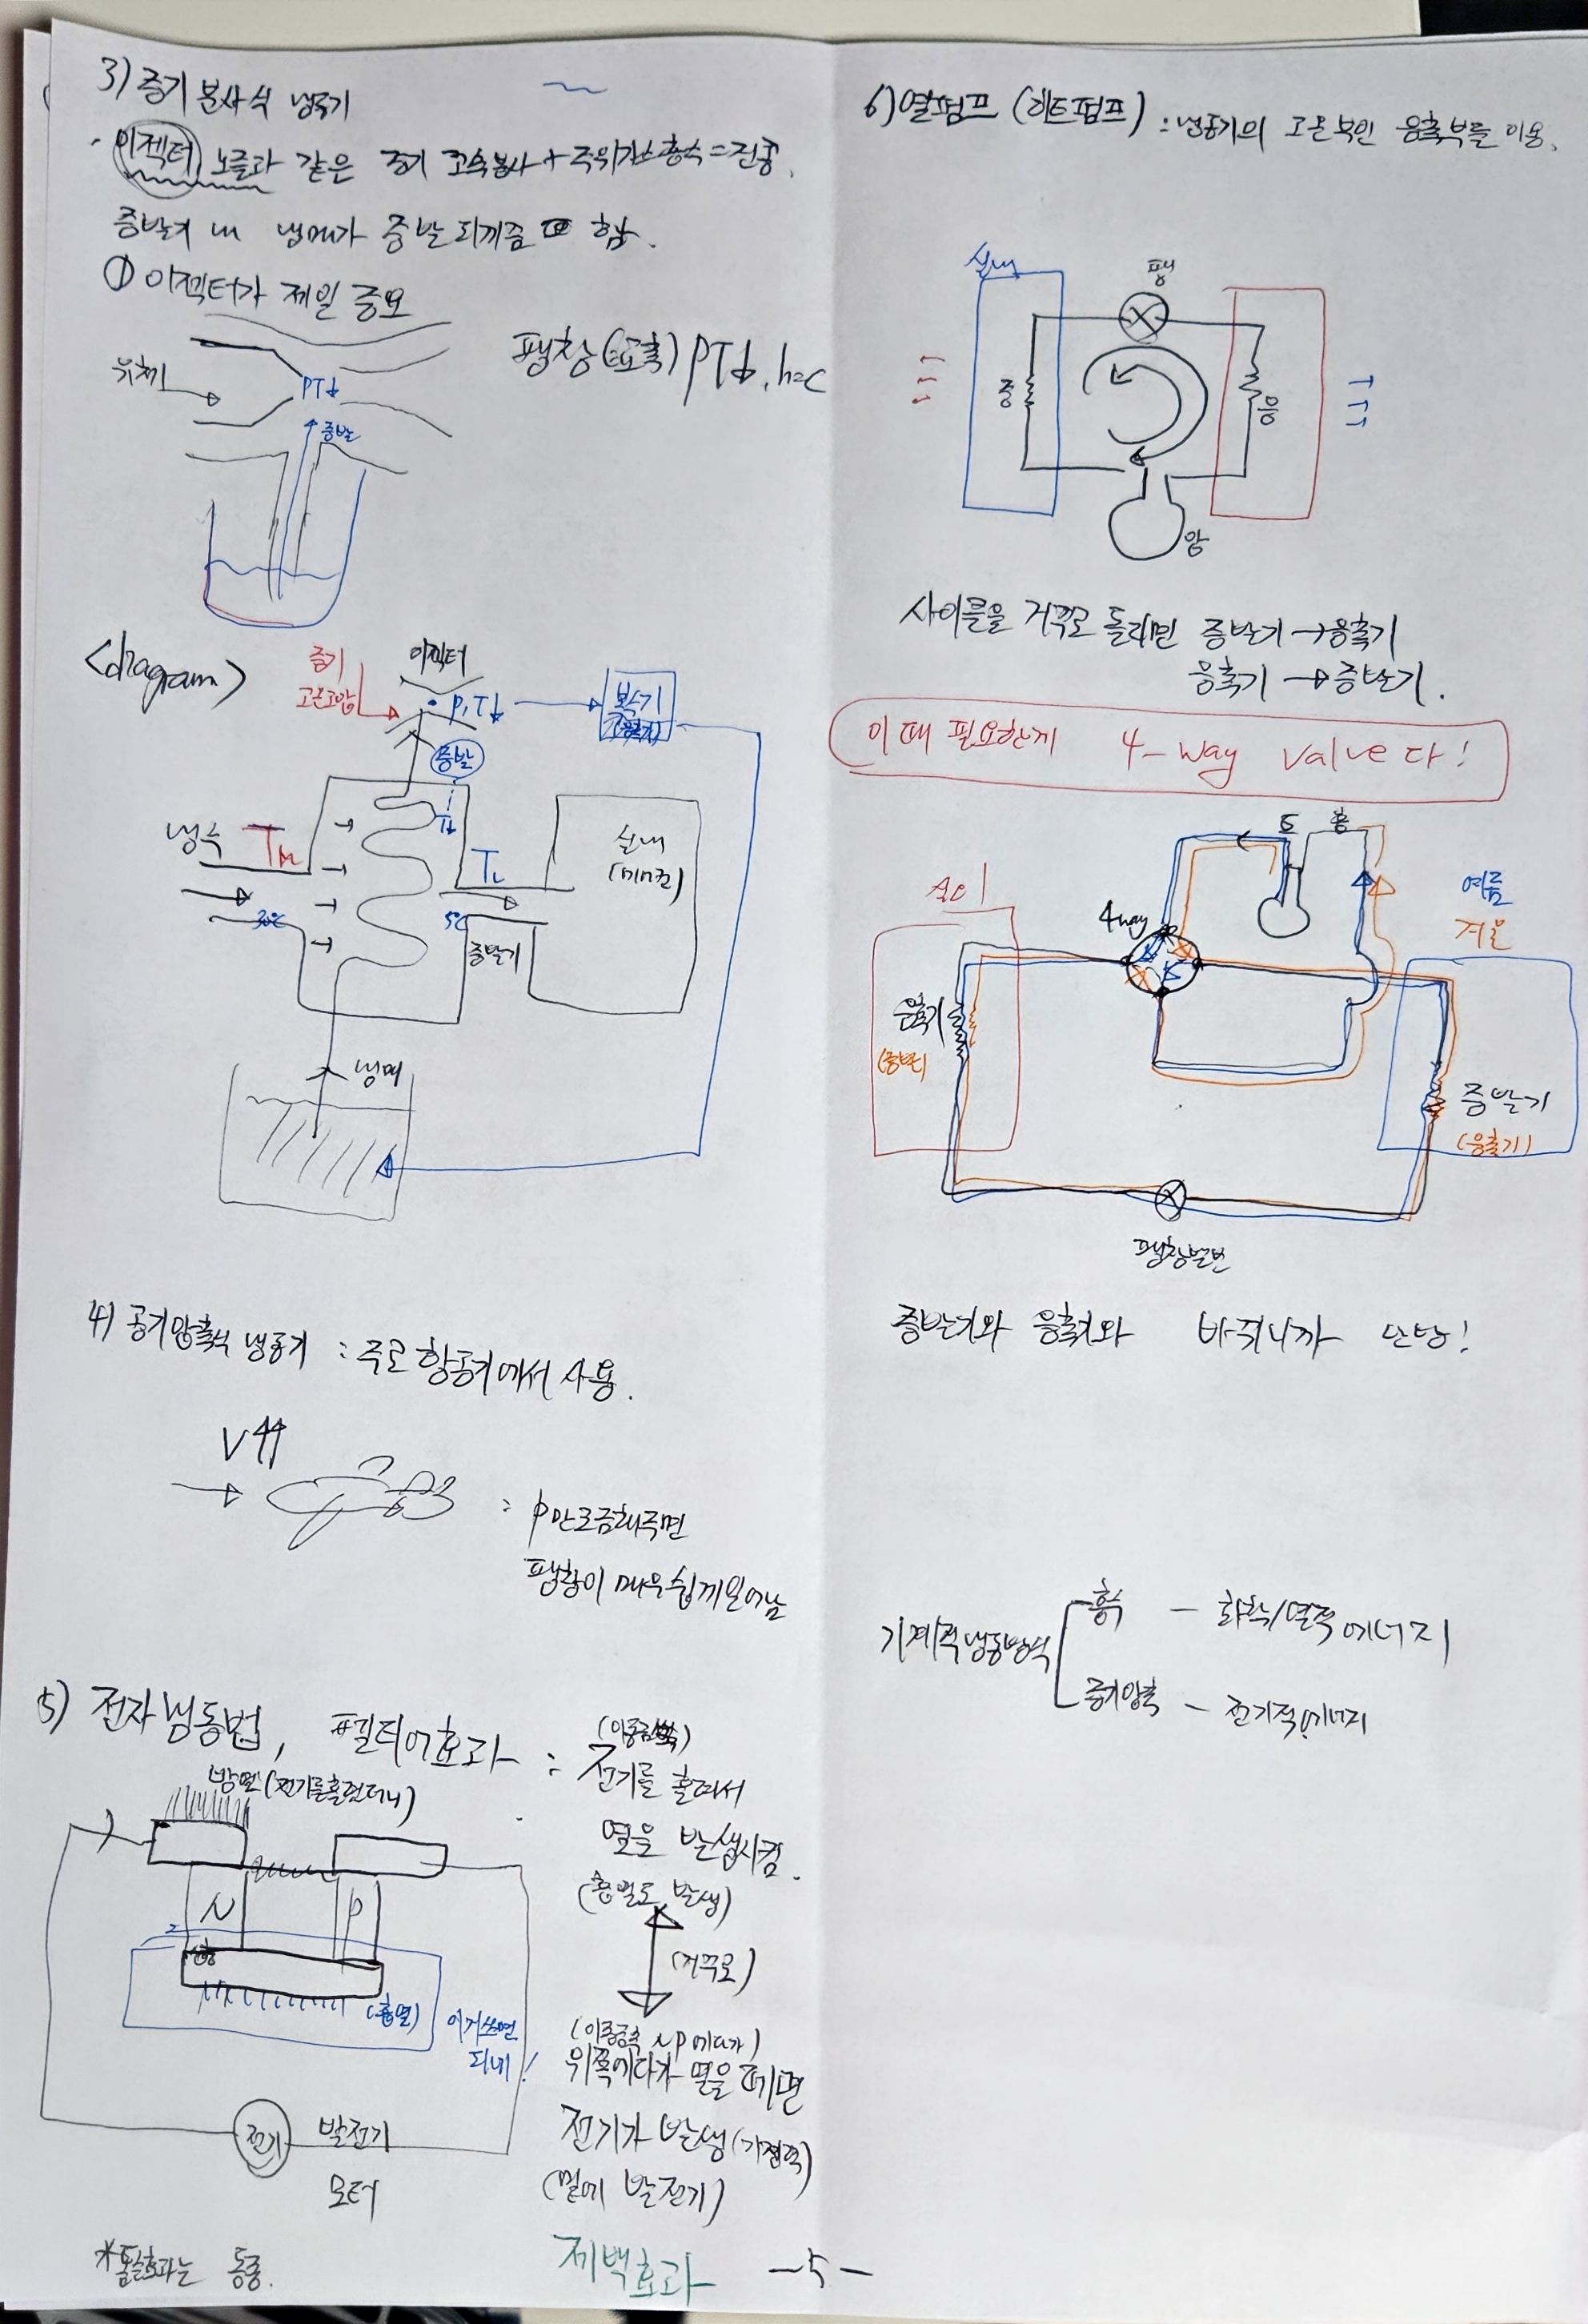 3) 증기 분사식 냉동기
· 이젝터) 노즐과 같은 증기 고속분사 + 주위가스흡수 = 진공.
증발기 내 냉매가 증발되게끔 함.
① 이젝터가 제일 중요
유체
PT↓
증발
팽창(교축) PT↓, h=c
<diagram>
증기
고온고압
이젝터
P,T↓
복수기
(응축기)
증발
T↓
냉수
30℃
T_L
5℃
증발기
실내
냉매
4) 공기압축식 냉동기 : 주로 항공기에서 사용.
V↑↑
: P만 조금해주면
팽창이 매우 쉽게 일어남
5) 전자냉동법, 펠티어효과 :
(이종금속)
전기를 흘려서
열을 발생시킴.
(흡열도 발생)
(거꾸로)
(이종금속 NP에다가)
위쪽에다가 열을 때면
전기가 발생 (기전력)
(밑에 발전기)
제백효과
방열 (전기를흘렸더니)
N
P
(흡열)
이거쓰면
되네!
전기
발전기
모터
*톰슨효과는 동종.
-5-
6) 열펌프 (히트펌프) : 냉동기의 고온부인 응축부를 이용.
실내
팽
증
응
압
사이클을 거꾸로 돌리면 증발기 → 응축기
응축기 → 증발기.
이때 필요한게 4-way valve다!
토
흡
4way
실외
여름
겨울
응축기
(증발)
증발기
(응축기)
팽창밸브
증발기와 응축기와 바뀌니까 난방!
기계적냉동방식
흡수 - 화학/열적 에너지
증기압축 - 전기적에너지